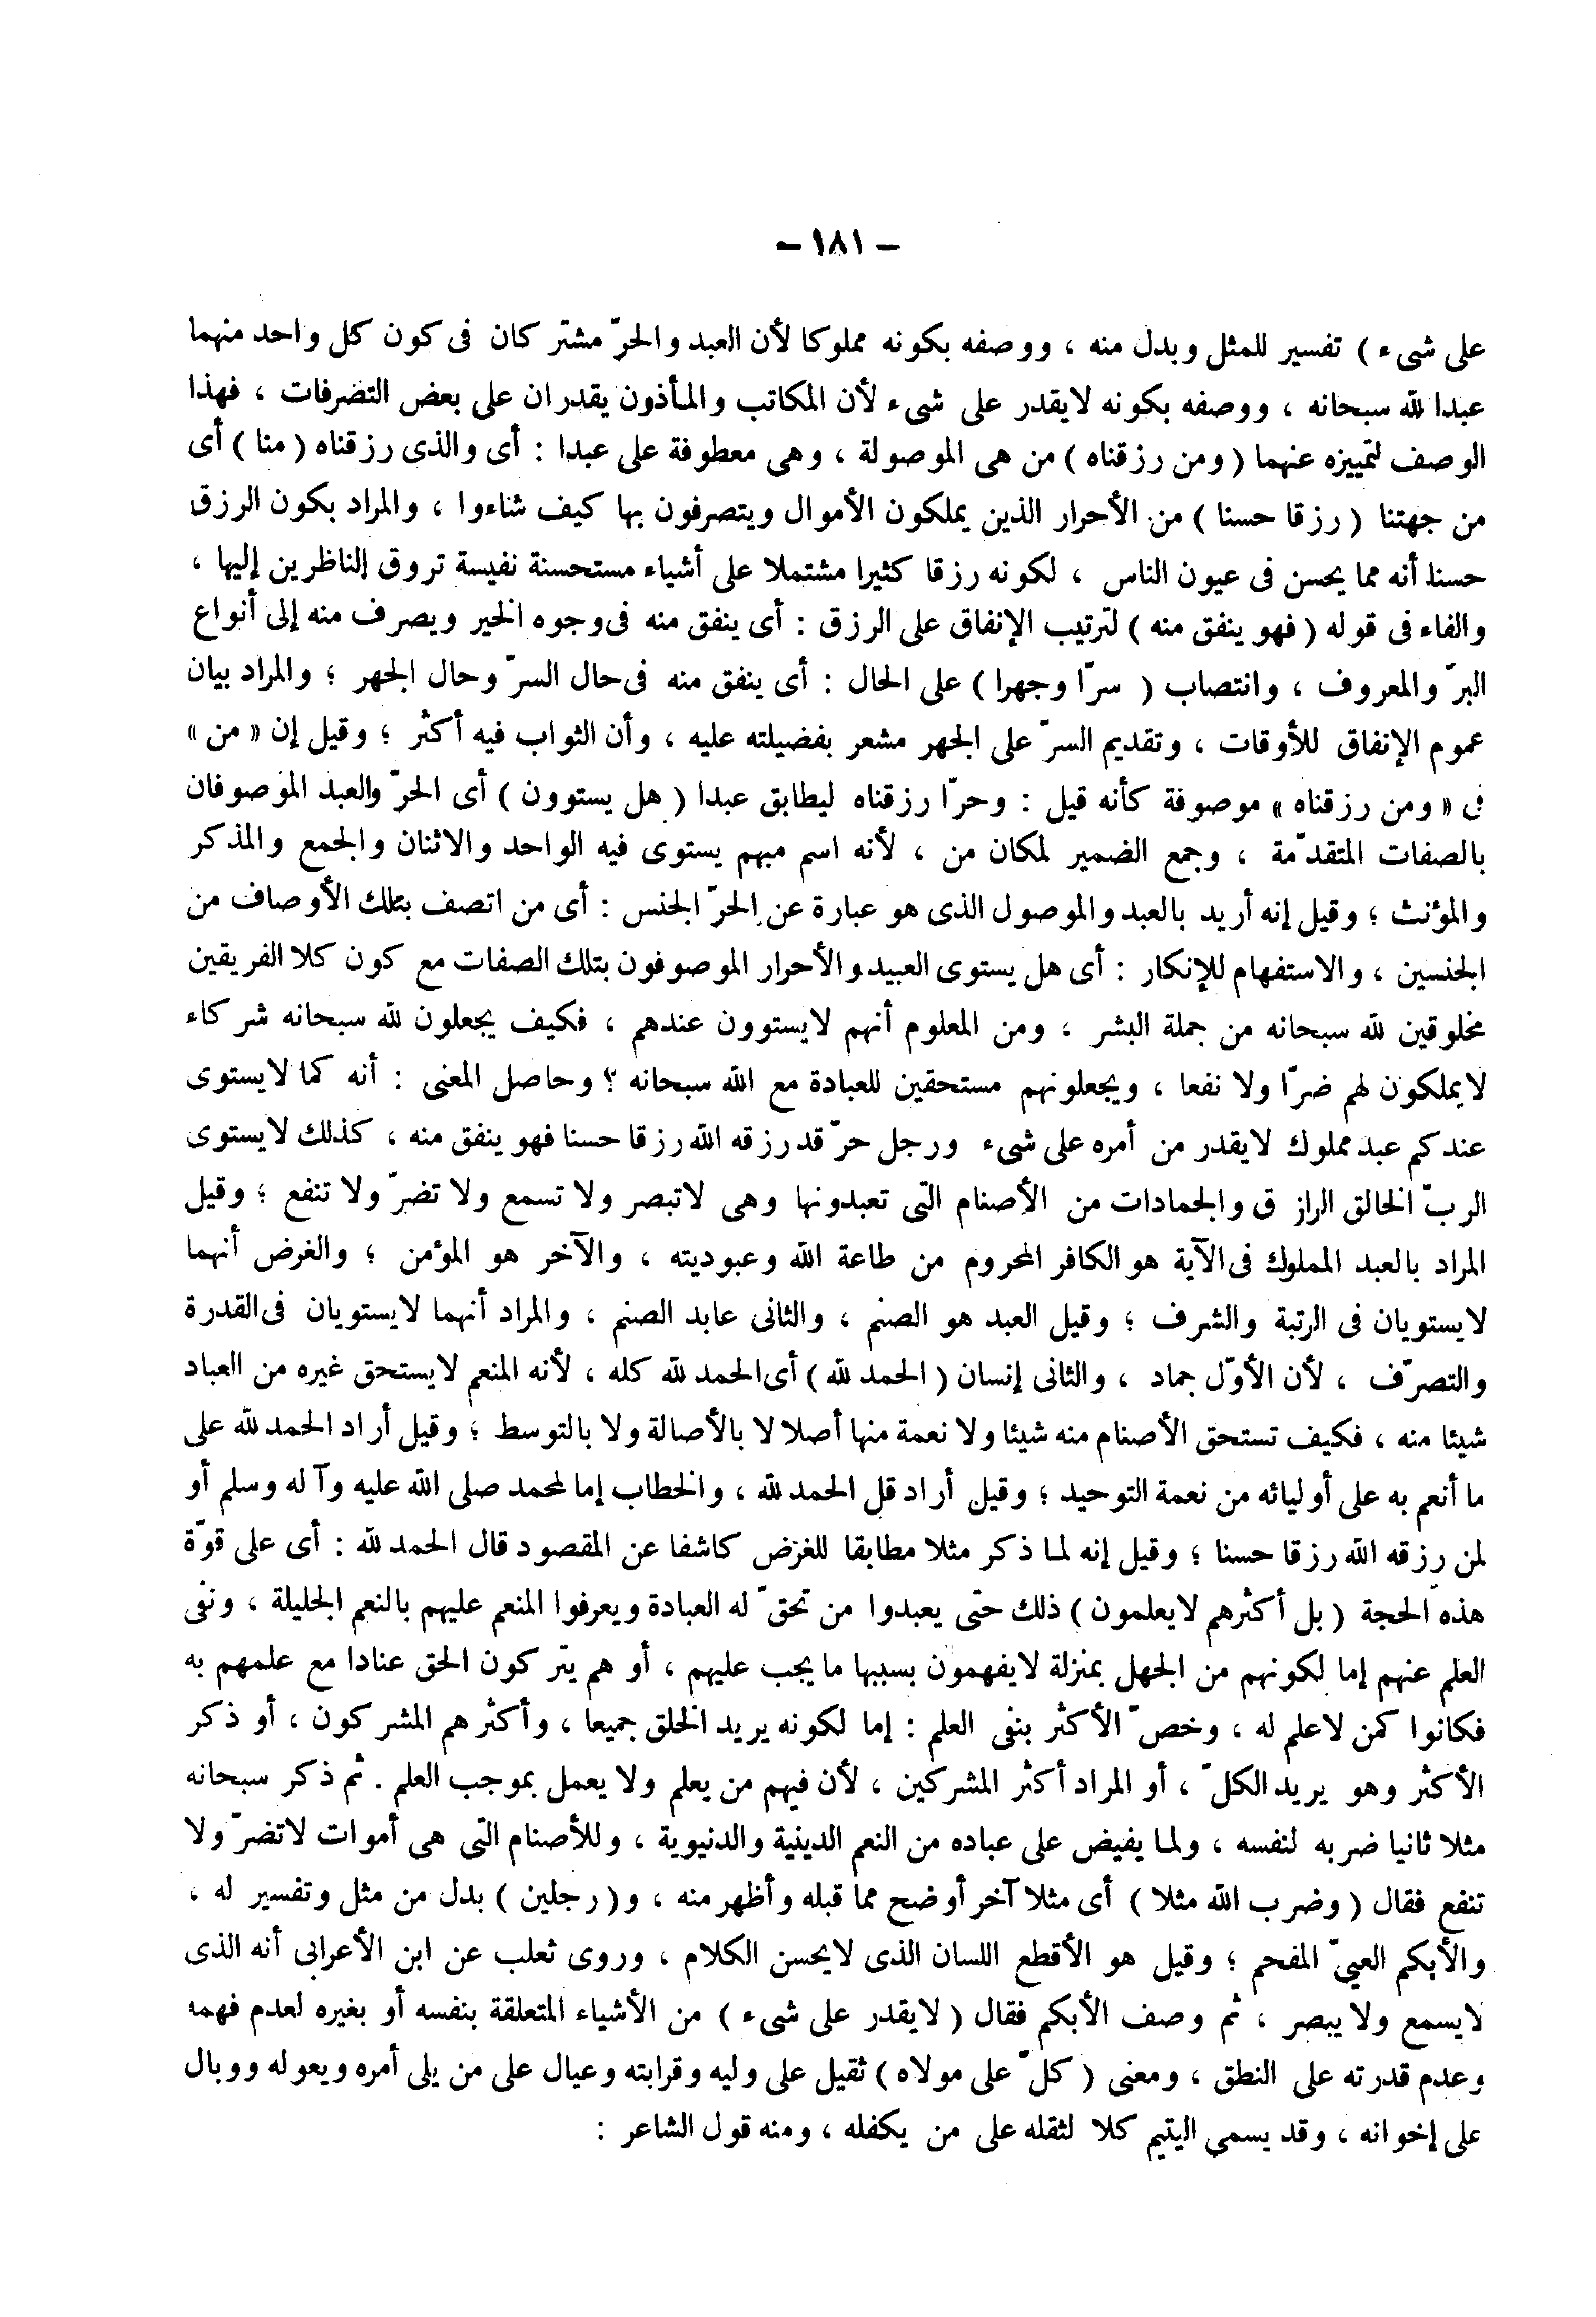 — ١٨١ —
على شىء ) تفسير للمثل وبدل منه ، ووصفه بكونه مملوكا لأن العبد والحرّ مشتركان فى كون كل واحد منهما
عبدا لله سبحانه ، ووصفه بكونه لايقدر على شىء لأن المكاتب والمأذون يقدران على بعض التصرفات ، فهذا
الوصف لتمييزه عنهما ( ومن رزقناه ) من هى الموصولة ، وهى معطوفة على عبدا : أى والذى رزقناه ( منا ) أى
من جهتنا ( رزقا حسنا ) من الأحرار الذين يملكون الأموال ويتصرفون بها كيف شاءوا ، والمراد بكون الرزق
حسنا أنه مما يحسن فى عيون الناس ، لكونه رزقا كثيرا مشتملا على أشياء مستحسنة نفيسة تروق الناظرين إليها ،
والفاء فى قوله ( فهو ينفق منه ) لترتيب الإنفاق على الرزق : أى ينفق منه فى وجوه الخير ويصرف منه إلى أنواع
البرّ والمعروف ، وانتصاب ( سرّا وجهرا ) على الحال : أى ينفق منه فى حال السرّ وحال الجهر ؛ والمراد بيان
عموم الإنفاق للأوقات ، وتقديم السرّ على الجهر مشعر بفضيلته عليه ، وأن الثواب فيه أكثر ؛ وقيل إن « من »
فى « ومن رزقناه » موصوفة كأنه قيل : وحرّا رزقناه ليطابق عبدا ( هل يستوون ) أى الحرّ والعبد الموصوفان
بالصفات المتقدّمة ، وجمع الضمير لمكان من ، لأنه اسم مبهم يستوى فيه الواحد والاثنان والجمع والمذكر
والمؤنث ؛ وقيل إنه أريد بالعبد والموصول الذى هو عبارة عن الحرّ الجنس : أى من اتصف بتلك الأوصاف من
الجنسين ، والاستفهام للإنكار : أى هل يستوى العبيد والأحرار الموصوفون بتلك الصفات مع كون كلا الفريقين
مخلوقين لله سبحانه من جملة البشر ، ومن المعلوم أنهم لايستوون عندهم ، فكيف يجعلون لله سبحانه شركاء
لايملكون لهم ضرّا ولا نفعا ، ويجعلونهم مستحقين للعبادة مع الله سبحانه ؟ وحاصل المعنى : أنه كما لايستوى
عندكم عبد مملوك لايقدر من أمره على شىء ورجل حرّ قد رزقه الله رزقا حسنا فهو ينفق منه ، كذلك لايستوى
الربّ الخالق الرازق والجمادات من الأصنام التى تعبدونها وهى لاتبصر ولا تسمع ولا تضرّ ولا تنفع ؛ وقيل
المراد بالعبد المملوك فى الآية هو الكافر المحروم من طاعة الله وعبوديته ، والآخر هو المؤمن ؛ والغرض أنهما
لايستويان فى الرتبة والشرف ؛ وقيل العبد هو الصنم ، والثانى عابد الصنم ، والمراد أنهما لايستويان فى القدرة
والتصرّف ، لأن الأوّل جماد ، والثانى إنسان ( الحمد لله ) أى الحمد لله كله ، لأنه المنعم لايستحق غيره من العباد
شيئا منه ، فكيف تستحق الأصنام منه شيئا ولا نعمة منها أصلا لا بالأصالة ولا بالتوسط ؛ وقيل أراد الحمد لله على
ما أنعم به على أوليائه من نعمة التوحيد ؛ وقيل أراد قل الحمد لله ، والخطاب إما لمحمد صلى الله عليه وآله وسلم أو
لمن رزقه الله رزقا حسنا ؛ وقيل إنه لما ذكر مثلا مطابقا للغرض كاشفا عن المقصود قال الحمد لله : أى على قوّة
هذه الحجة ( بل أكثرهم لايعلمون ) ذلك حتى يعبدوا من تحقّ له العبادة ويعرفوا المنعم عليهم بالنعم الجليلة ، ونفى
العلم عنهم إما لكونهم من الجهل بمنزلة لايفهمون بسببها ما يجب عليهم ، أو هم يتركون الحق عنادا مع علمهم به
فكانوا كمن لاعلم له ، وخصّ الأكثر بنفى العلم : إما لكونه يريد الخلق جميعا ، وأكثرهم المشركون ، أو ذكر
الأكثر وهو يريد الكلّ ، أو المراد أكثر المشركين ، لأن فيهم من يعلم ولا يعمل بموجب العلم . ثم ذكر سبحانه
مثلا ثانيا ضربه لنفسه ، ولما يفيض على عباده من النعم الدينية والدنيوية ، وللأصنام التى هى أموات لاتضرّ ولا
تنفع فقال ( وضرب الله مثلا ) أى مثلا آخر أوضح مما قبله وأظهر منه ، و( رجلين ) بدل من مثل وتفسير له ،
والأبكم العيىّ المفحم ؛ وقيل هو الأقطع اللسان الذى لايحسن الكلام ، وروى ثعلب عن ابن الأعرابى أنه الذى
لايسمع ولا يبصر ، ثم وصف الأبكم فقال ( لايقدر على شىء ) من الأشياء المتعلقة بنفسه أو بغيره لعدم فهمه
وعدم قدرته على النطق ، ومعنى ( كلّ على مولاه ) ثقيل على وليه وقرابته وعيال على من يلى أمره ويعوله ووبال
على إخوانه ، وقد يسمى اليتيم كلا لثقله على من يكفله ، ومنه قول الشاعر :